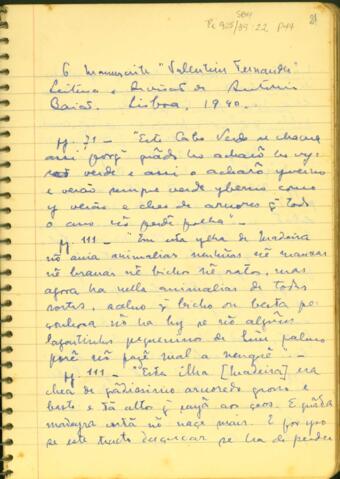 21
O manuscrito "Valentim Fernandes"
Leitura e Revisão de António
Baião. Lisboa, 1940.
Pg. 71 – "Este Cabo Verde se chama
assi porq̃ quãdo ho acharõ ho
verde e assi o acharõ yverno
e verão sempre verde yverno como
y verão e cheo de arvores q̃ todo
o ano nõ perdẽ folha" –
Pg. 111 – "Em esta ylha de Madeira
nõ avia animalias nenhũas nẽ mansas
nẽ bravas nẽ bicho nẽ rato, mas
agora ha nella animalias de todas
sortes, salvo q̃ bicho ou besta pe-
çonhosa nõ ha hy se nõ algũas
lagartinhas pequeninas de hũu palmo
porẽ nõ fazẽ mal a nenguẽ". –
Pg. 111 – "Esta ilha [Madeira] era
chea de arvoredo grosso e
basto e tã alto q̃ aos çeos. E
madeyra nõ naçe mais. E por q̃
se este trato daçucar se ha de perder